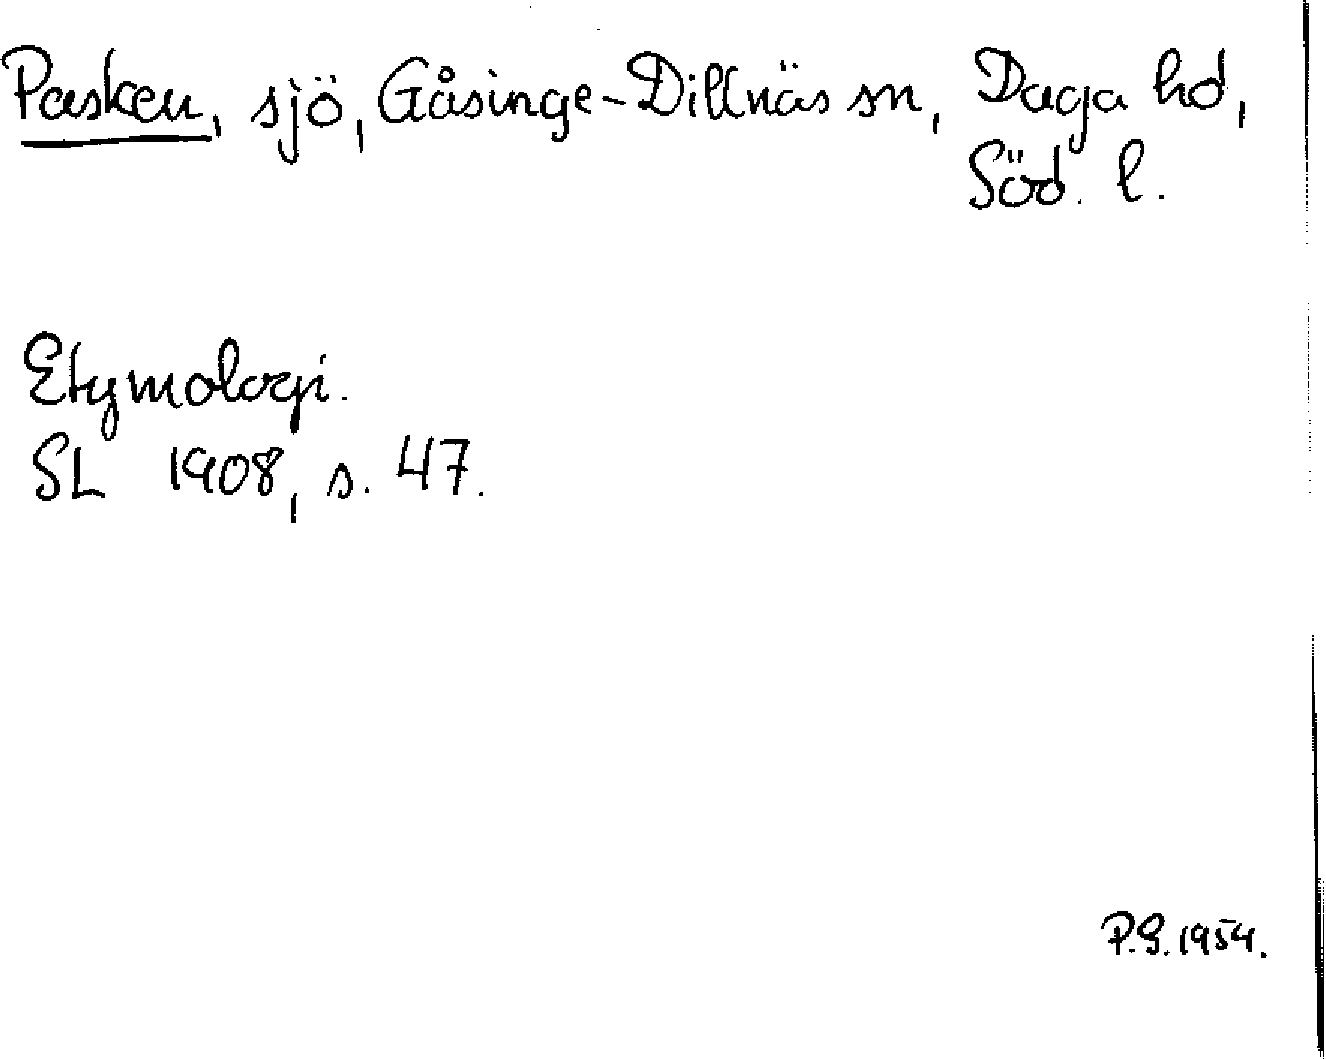 Pasken, sjö, Gåsinge-Dillnäs sn, Daga hd,
Söd. l.
Etymologi.
SL 1908, s. 47.
P.G. 1954.